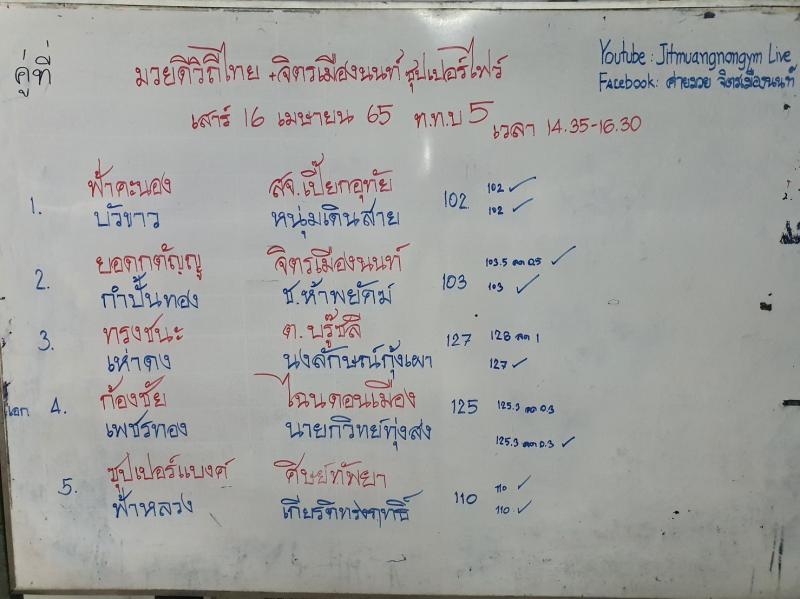 คู่ที่
มวยดีวิถีไทย + จิตรเมืองนนท์ ซุปเปอร์ไฟร์
Youtube : Jitmuangnongym Live
Facebook : ค่ายมวย จิตรเมืองนนท์
เสาร์ 16 เมษายน 65 ท.ท.บ 5 เวลา 14.35-16.30
1. ฟ้าคะนอง สจ.เปี๊ยกอุทัย 102 102 ✓
บัวขาว หนุ่มเดินสาย 102 ✓
2. ยอดกตัญญู จิตรเมืองนนท์ 103 103.5 ลด 0.5 ✓
กำปั้นทอง ช.ห้าพยัคฆ์ 103 ✓
3. ทรงชนะ ต.บรู๊ซลี 127 128 ลด 1
เห่าดง นงลักษณ์กุ้งเผา 127 ✓
เอก 4. ก้องชัย ไฉนดอนเมือง 125 125.3 ลด 0.3
เพชรทอง นายกวิทย์ทุ่งสง 125.3 ลด 0.3 ✓
5. ซุปเปอร์แบงค์ ศิษย์ทัพยา 110 110 ✓
ฟ้าหลวง เกียรติทรงฤทธิ์ 110 ✓